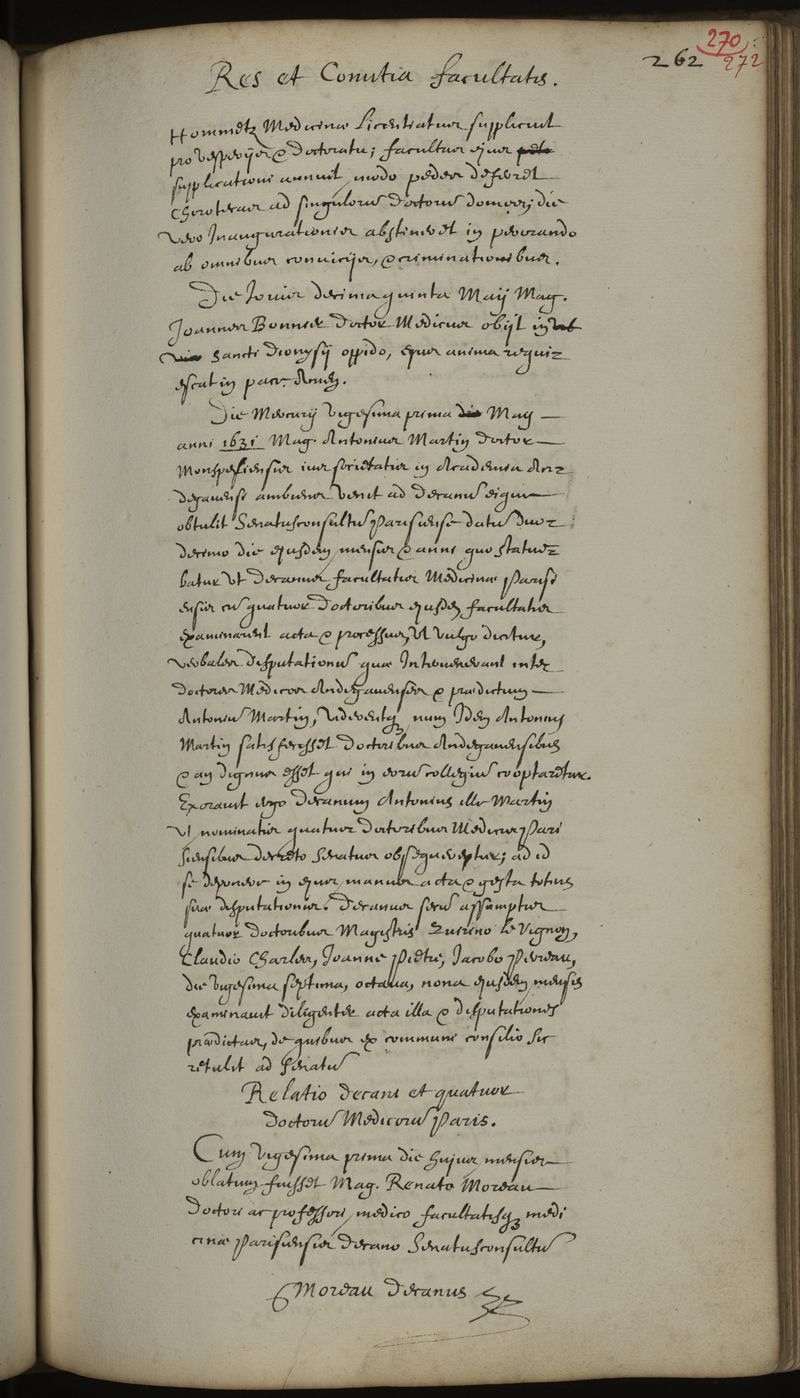 270
262 272
Res et Comitia facultatis.
Hommetz Medicinæ Licentiatus supplicuit
pro vesperijs & doctoratu; facultas ejus
supplicationi annuit, modo pedes deferret
Chirotecas ad singulorū doctorū domos; die
vero Inaugurationis abstineret in perorando
ab omnibus convicijs, & criminationibus.
Die Jovis decima quinta Maij Mag.
Joannes Bonnier doctor Medicus obijt in
sancti Dionysij oppido, ejus anima requi=
escat in pace. Amen.
Die Mercurij vigesima prima Maij
anni 1631 Mag. Antonius Martin doctor
Monspeliensis ius societatis in Academia An=
degavensi ambiens venit ad decanū eique
obtulit Senatusconsultū Parisiense datū duo=
decimo die ejusdem mensis & anni quo statue=
batur ut decanus facultatis Medicinæ Parisi
ensis cū quatuor doctoribus ejusdē facultatis
examinarent acta & processus, ut vulgo dicitur,
verbales disputationū quæ Intervenerant inter
doctores Medicos Andegavenses & prædictum
Antoniū Martin, viderentq; num Idem Antonius
Martin satisfecisset doctoribus Andegavensibus
& an dignus esset qui in eorū collegiū cooptaretur.
Exoravit ergo decanum Antonius ille Martin
ut nominatis quatuor doctoribus Medicis Pari
siensibus decreto Senatus obsequeretur; ad id
se deponere in ejus manus acta & gesta totius
suæ disputationis. Decanus secū assumptis
quatuor doctoribus Magistris Quirino le Vignon,
Claudio Charles, Joanne Pietre, Jacobo Perreau,
die vigesima septima, octava, nona ejusdem mensis
examinavit diligenter acta illa & disputationes
prædictas, de quibus ex communi consilio sic
retulit ad senatū
Relatio decani et quatuor
doctorū Medicorū Paris.
Cum vigesima prima die hujus mensis
oblatum fuisset Mag. Renato Moreau
doctori ac professori medico facultatisq; medi
cinæ Parisiensis decano Senatusconsultū
Moreau decanus